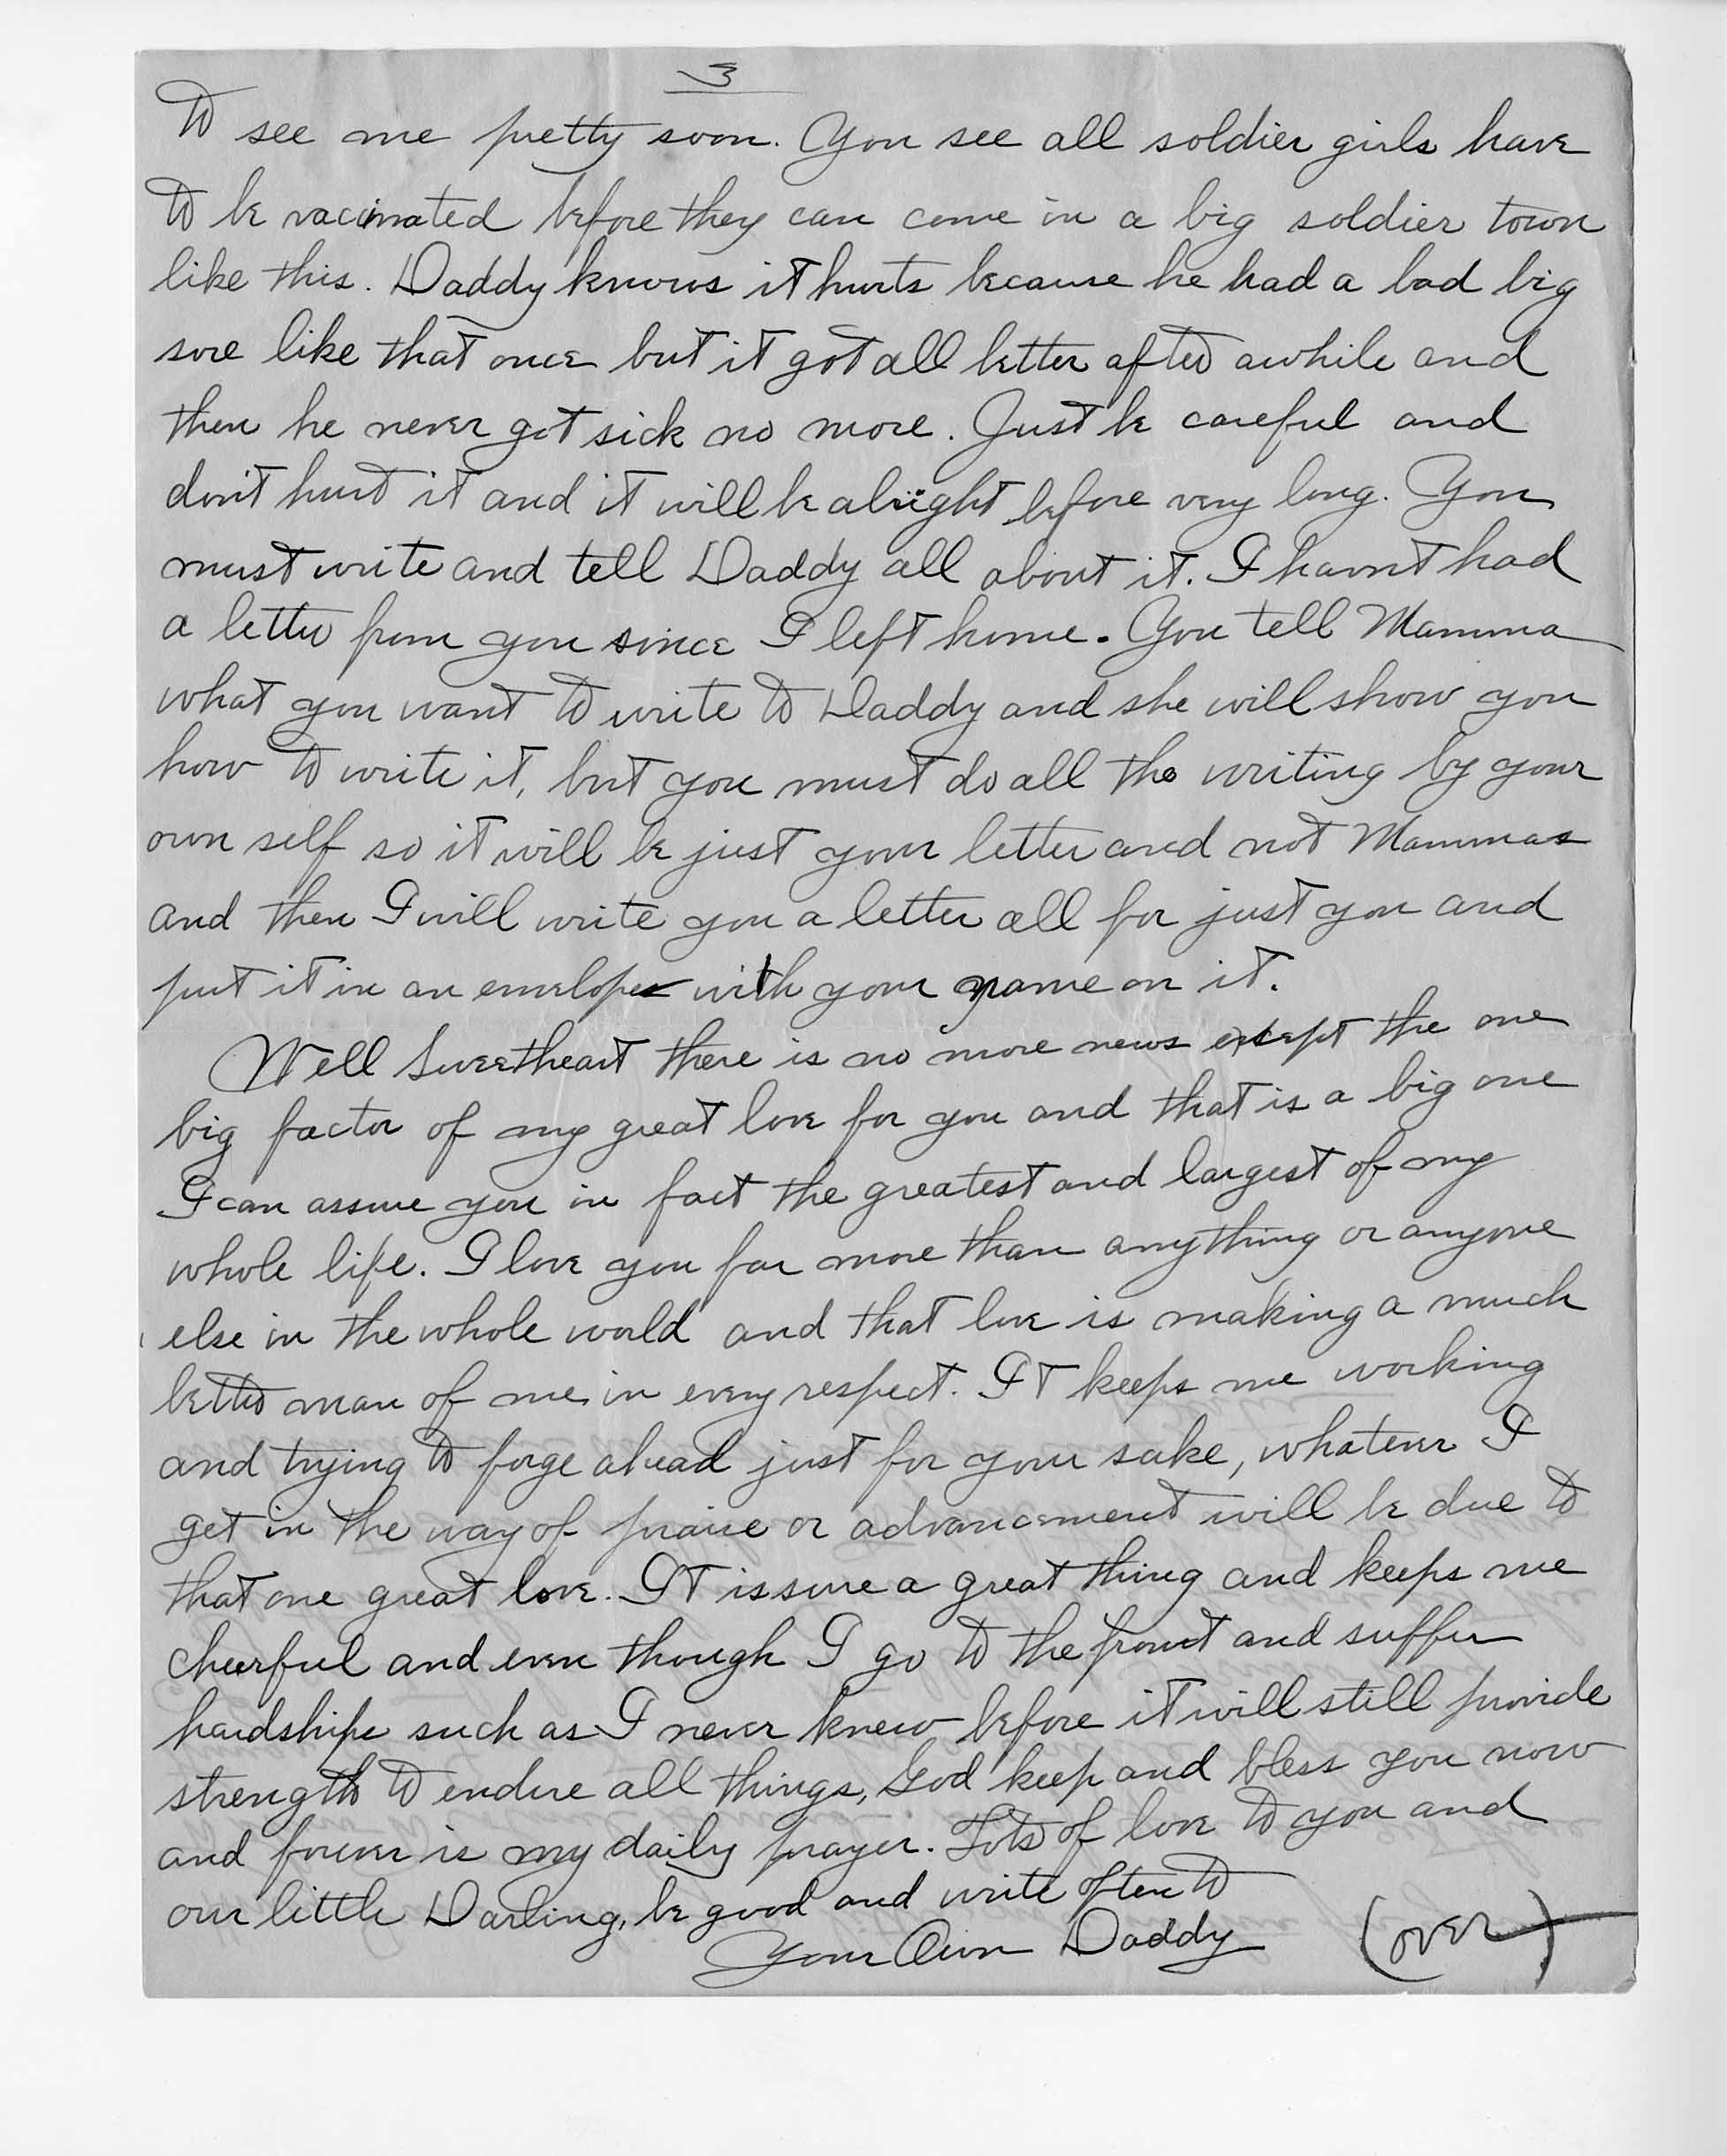 3
to see me pretty soon. You see all soldier girls have
to be vaccinated before they can come in a big soldier town
like this. Daddy knows it hurts because he had a bad big
sore like that once but it got all better after awhile and
then he never got sick no more. Just be careful and
don't hurt it and it will be alright before very long. You
must write and tell Daddy all about it. I havnt had
a letter from you since I left home. You tell Mamma
what you want to write to Daddy and she will show you
how to write it, but you must do all the writing by your
own self so it will be just your letter and not Mammas
and then I will write you a letter all for just you and
put it in an envelope with your name on it.
Well Sweetheart there is no more news except the one
big factor of my great love for you and that is a big one
I can assure you in fact the greatest and largest of my
whole life. I love you far more than anything or anyone
else in the whole world and that love is making a much
better man of me in every respect. It keeps me working
and trying to forge ahead just for your sake, whatever I
get in the way of praise or advancement will be due to
that one great love. It is sure a great thing and keeps me
cheerful and even though I go to the front and suffer
hardships such as I never knew before it will still provide
strength to endure all things, God keep and bless you now
and forever is my daily prayer. Lots of love to you and
our little Darling, be good and write often to
Your Own Daddy (OVER)